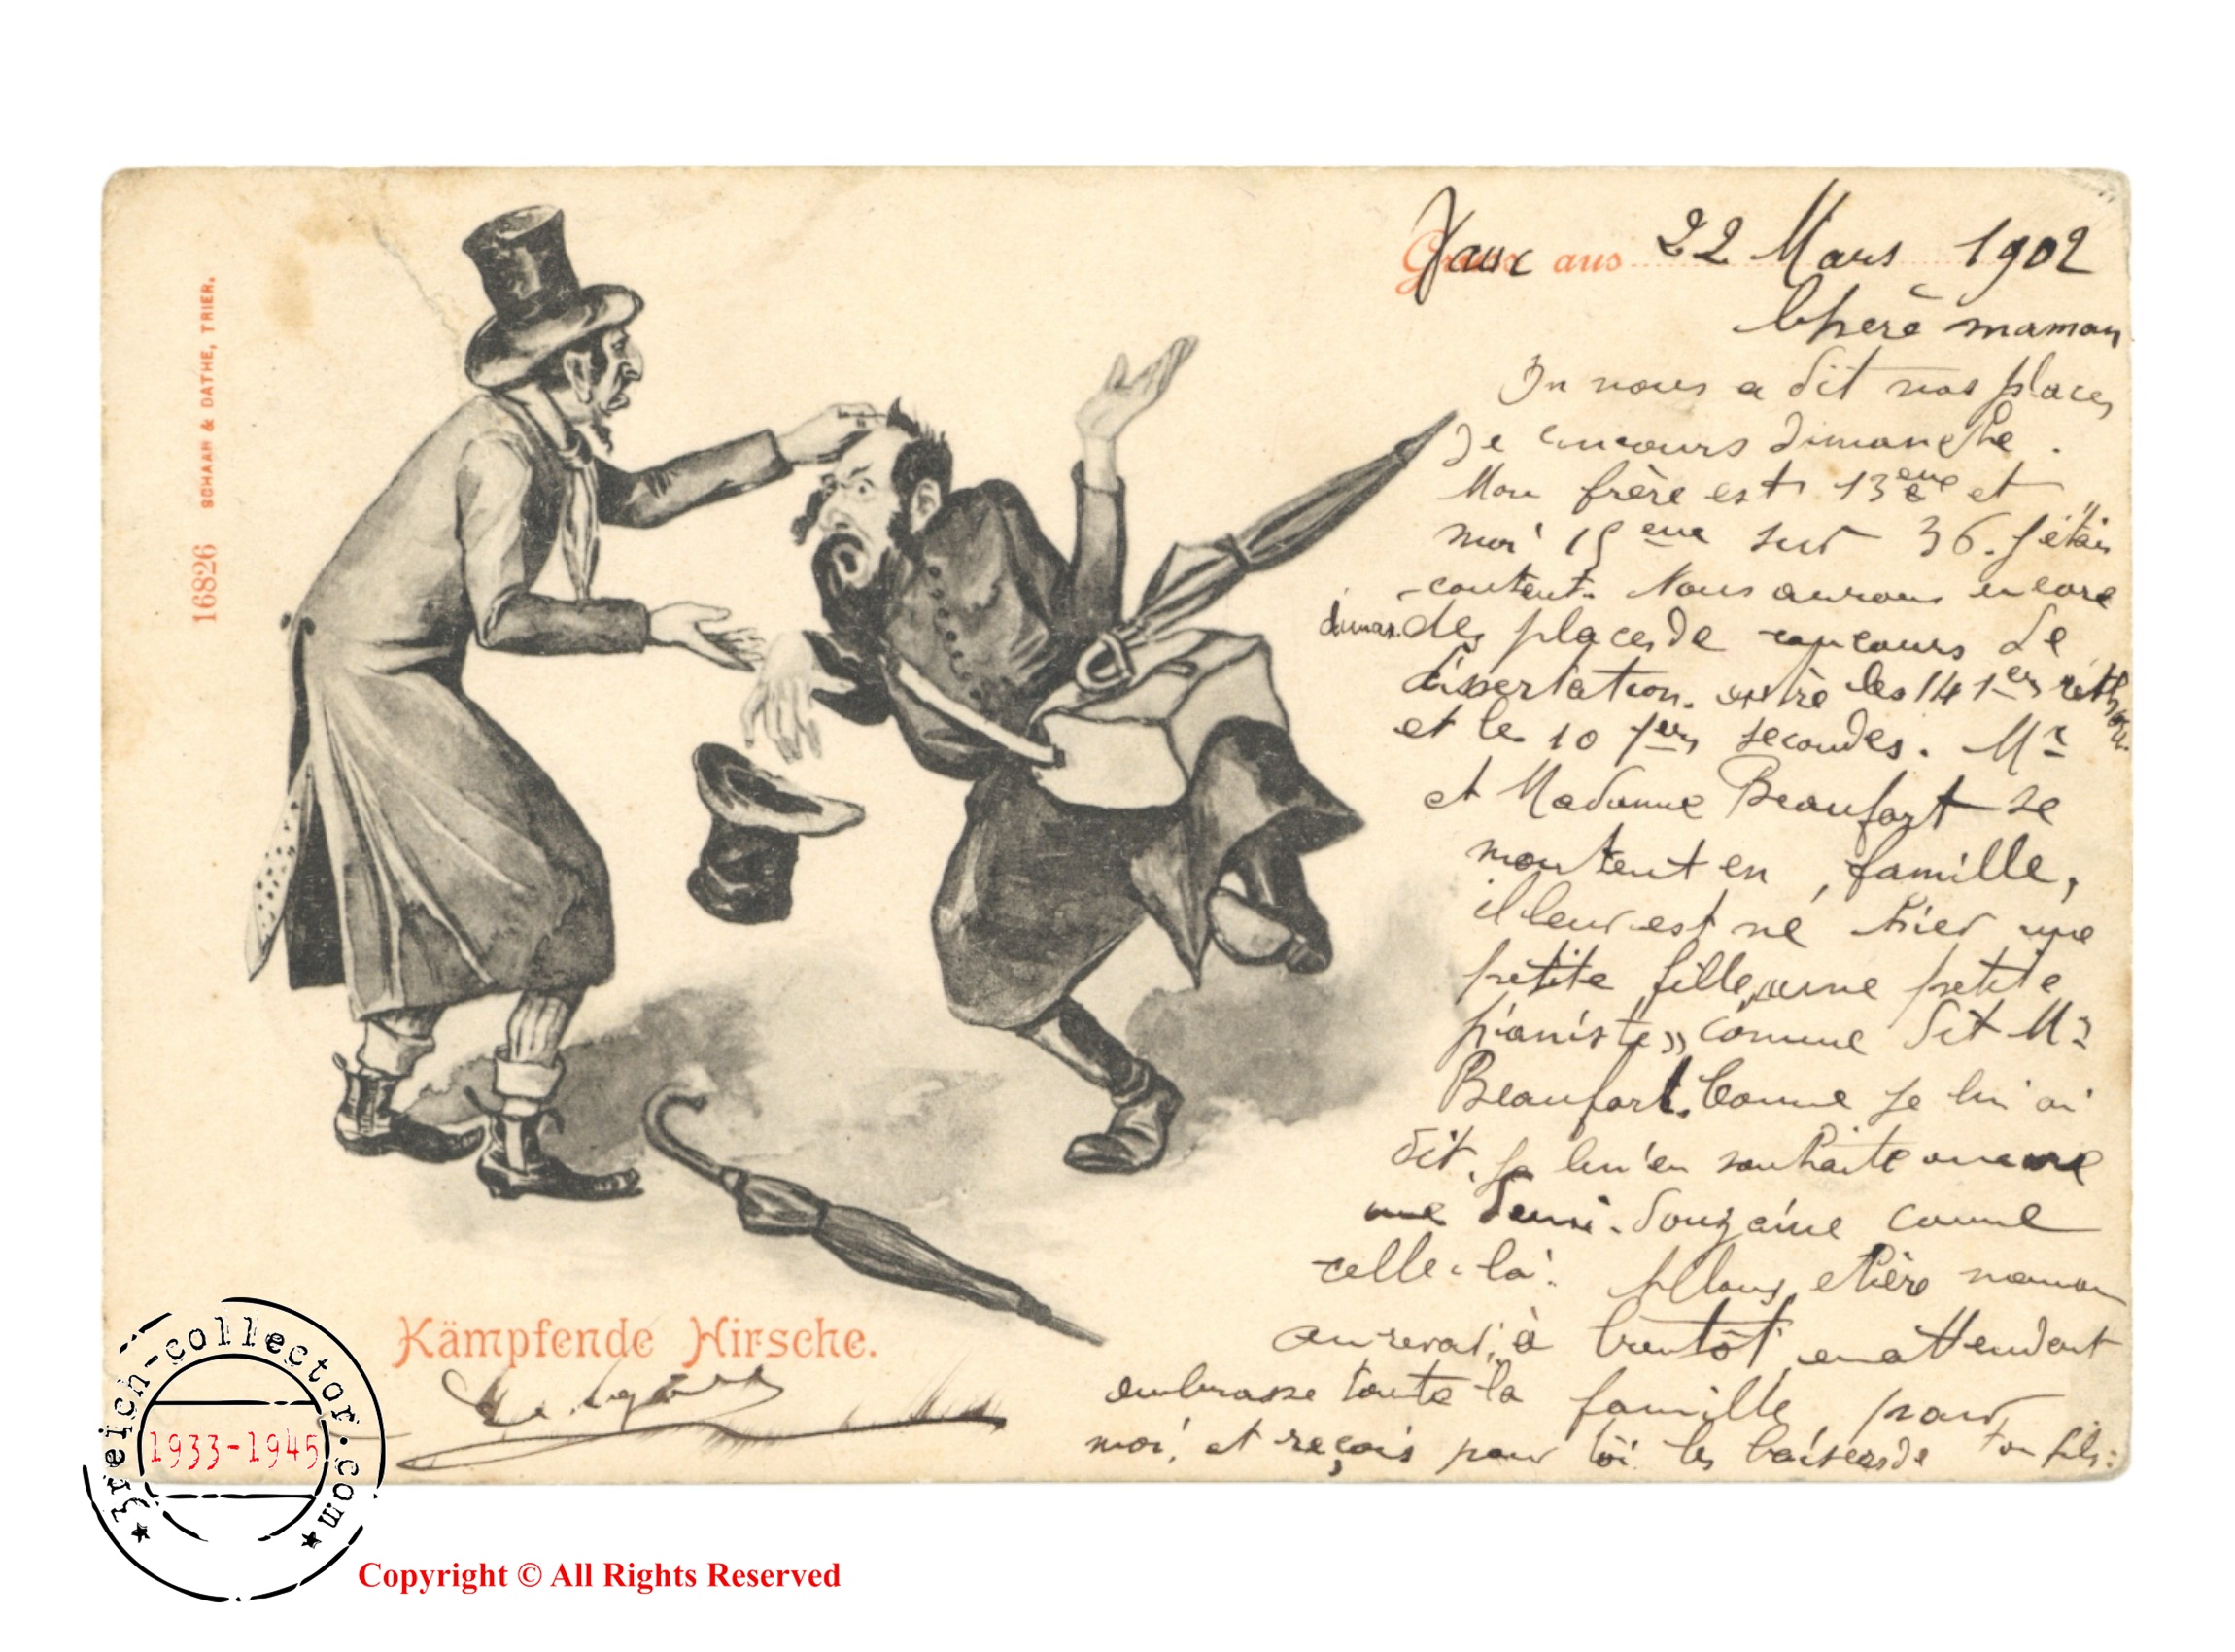 16826 SCHAAR & DATHE, TRIER.
Gruss aus 22 Mars 1902
Chère maman
On nous a dit nos places
de concours dimanche.
Mon frère est 13eme et
moi 15eme sur 36. J'étais
content. Nous aurons encore
diman. des places de concours de
dissertation. entre les 14 1ers
et le 10 1ers secondes. Mr
et Madame Beaufort se
montent en famille,
il leur est né hier une
petite fille, une petite
pianiste» comme dit Mr
Beaufort. Comme je lui ai
dit, je lui en souhaite encore
une demi-douzaine comme
celle-là. Allons, chère maman
au revoir, à bientôt, en attendant
embrasse toute la famille pour
moi, et reçois pour toi les baisers de ton fils:
Kämpfende Hirsche.
3reich-collector.com
1933-1945
Copyright © All Rights Reserved